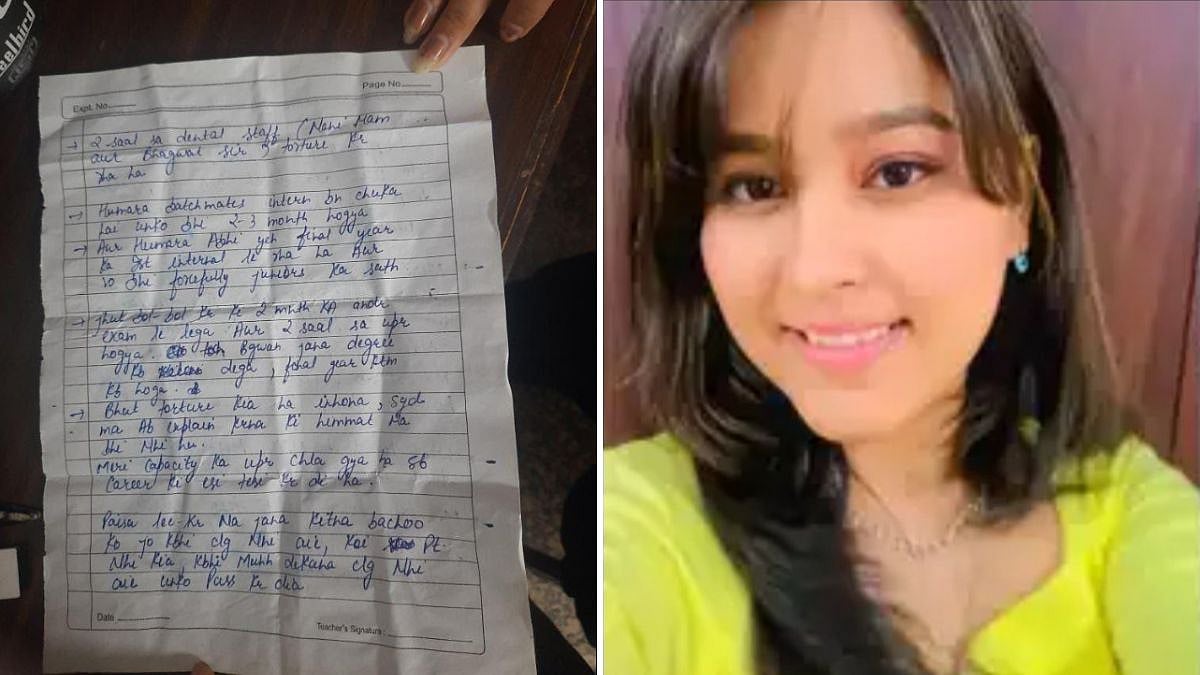 Expt. No.
Page No.
→ 2 saal sa dental staff, (Nani Mam
aur Bhagwat sir) torture kr
rha ha
→ Humara batchmates intern bn chuka
hai unko bhi 2-3 month hogya
→ Aur Humara Abhi yeh final year
ka 1st internal le rha ha Aur
vo bhi forcefully juniors ka sath
→ Jhut bol-bol kr ki 2 month KA andr
exam le lega Aur 2 saal sa upr
hogya. Bgwan jana degree
kb dega, final year ktm
kb hoga.
→ Bhut torture kia ha inhona, syd
ma Ab explain krna ki himmat ma
bhi Nhi hu.
Meri capacity ka upr chla gya ha sb
Career ki esi tesi kr di ha.
Paisa lee-kr Na jana kitna bachoo
ko jo kbhi clg Nhi aie, koi Pt.
Nhi kia, kbhi Muhh dikhana clg Nhi
aie unko Pass kr dia
Date
Teacher's Signature :